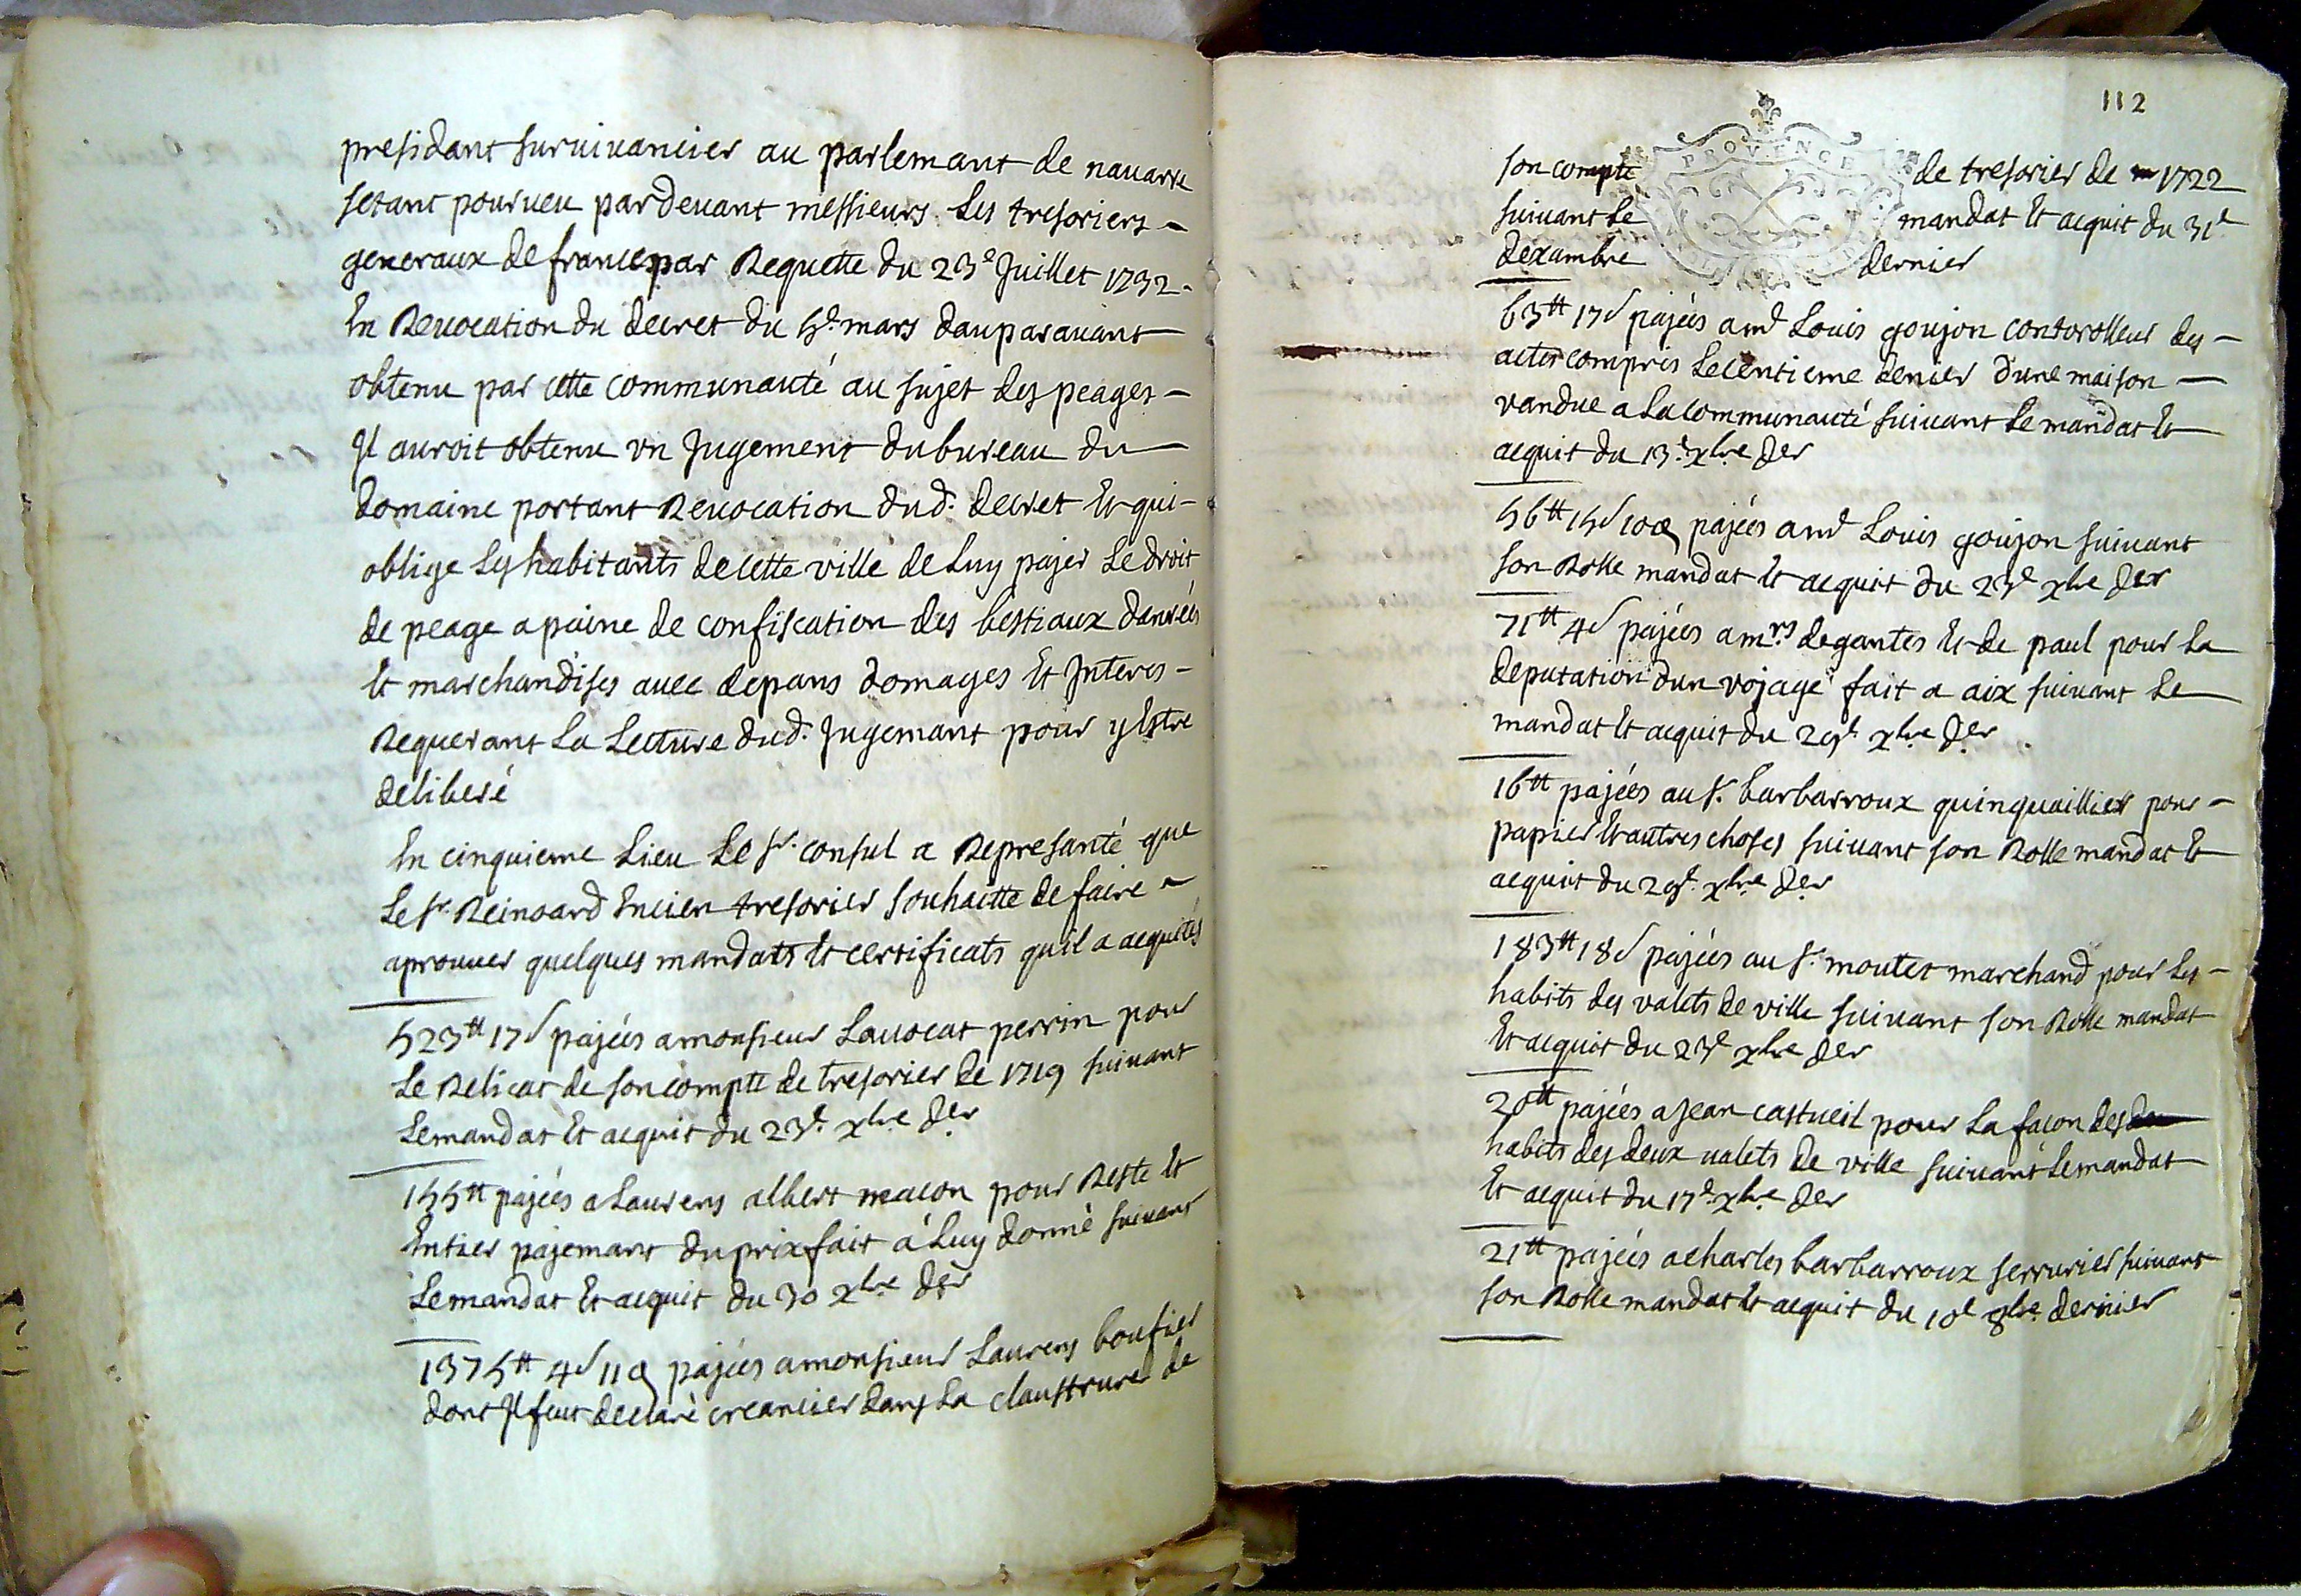 presidant survivancier au parlemant de navarre
setant pourveu pardevant messieurs les tresoriers
generaux de france par Requette du 23e Juillet 1732.
En Revocation du decret du 5e. mars dauparavant
obtenu par cette communauté au sujet des peages
Jl auroit obtenu vn Jugement du bureau du
domaine portant Revocation dud. decret Et qui
oblige les habitants de cette ville de luy pajer le droit
de peage a paine de confiscation des bestiaux danrées
Et marchandises avec depans domages Et Interes
Requerant la lecture dud. Jugemant pour y Estre
deliberé
En cinquieme lieu le sr. consul a Represanté que
le sr. Reinoard Encien tresorier souhaitte de faire
aprouver quelques mandats Et certificats quil a acquités
523tt 17s pajées a monsieur lavocat perrin pour
le Relicat de son compte de tresorier de 1719 suivant
le mandat Et acquit du 23e. xbre der
155tt pajées a laurens albert macon pour Reste Et
Entier pajemant du prix fait á luy donné suivant
le mandat Et acquit du 30 xbre der
1375tt 4s 11d pajées a monsieur laurens boufier
dont Jl fut declaré creancier dans la claustrure de
112
PROVENCE
son compte de tresorier de 1722
suivant le mandat Et acquit du 31e
dexambre dernier
63tt 17s pajées a md louis goujon controlleur des
actes compris le centieme denier dune maison
vandue a la communauté suivant le mandat Et
acquit du 13e. xbre der
56tt 15s 10d pajées a md louis goujon suivant
son Rolle mandat Et acquit du 23e xbre der
71tt 4s pajées a mrs. degantes Et de paul pour la
deputation dun vojage fait a aix suivant le
mandat Et acquit du 29e. xbre der
16tt pajées au sr. barbarroux quinquaillier pour
papier Et autres choses suivant son Rolle mandat Et
acquit du 29e. xbre der
183tt 18s pajées au sr. moutet marchand pour les
habits des valets de ville suivant son Rolle mandat
Et acquit du 23e xbre der
20tt pajées a jean castueil pour la facon des
habits des deux valets de ville suivant le mandat
Et acquit du 17e. xbre der
21tt pajées a charles barbarroux serrurier suivant
son Rolle mandat Et acquit du 10e 8bre. dernier